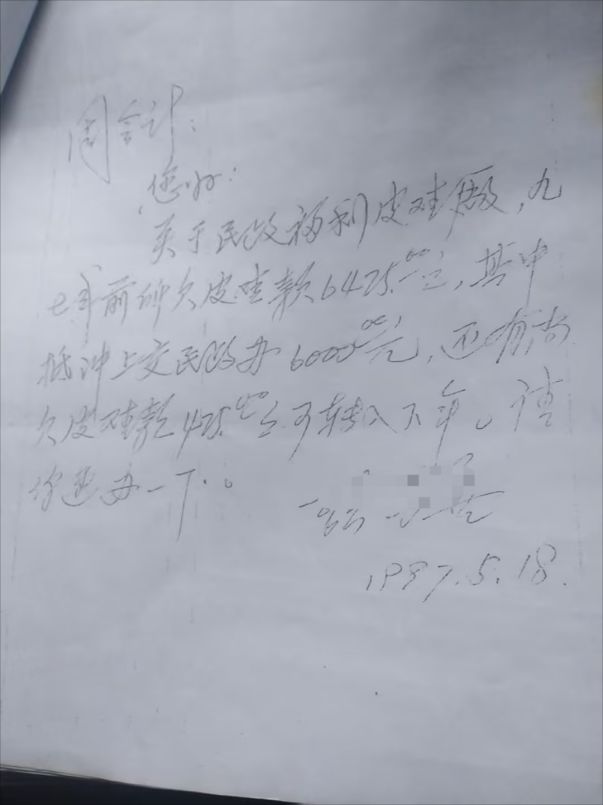 周会计:
您好:
关于民政福利皮鞋厂,九
七年前所欠皮鞋款6425.00元,其中
抵冲上交民政办6000.00元,还有尚
欠皮鞋款425.00元可转入下年。请
你速办一下。
1997.5.18.